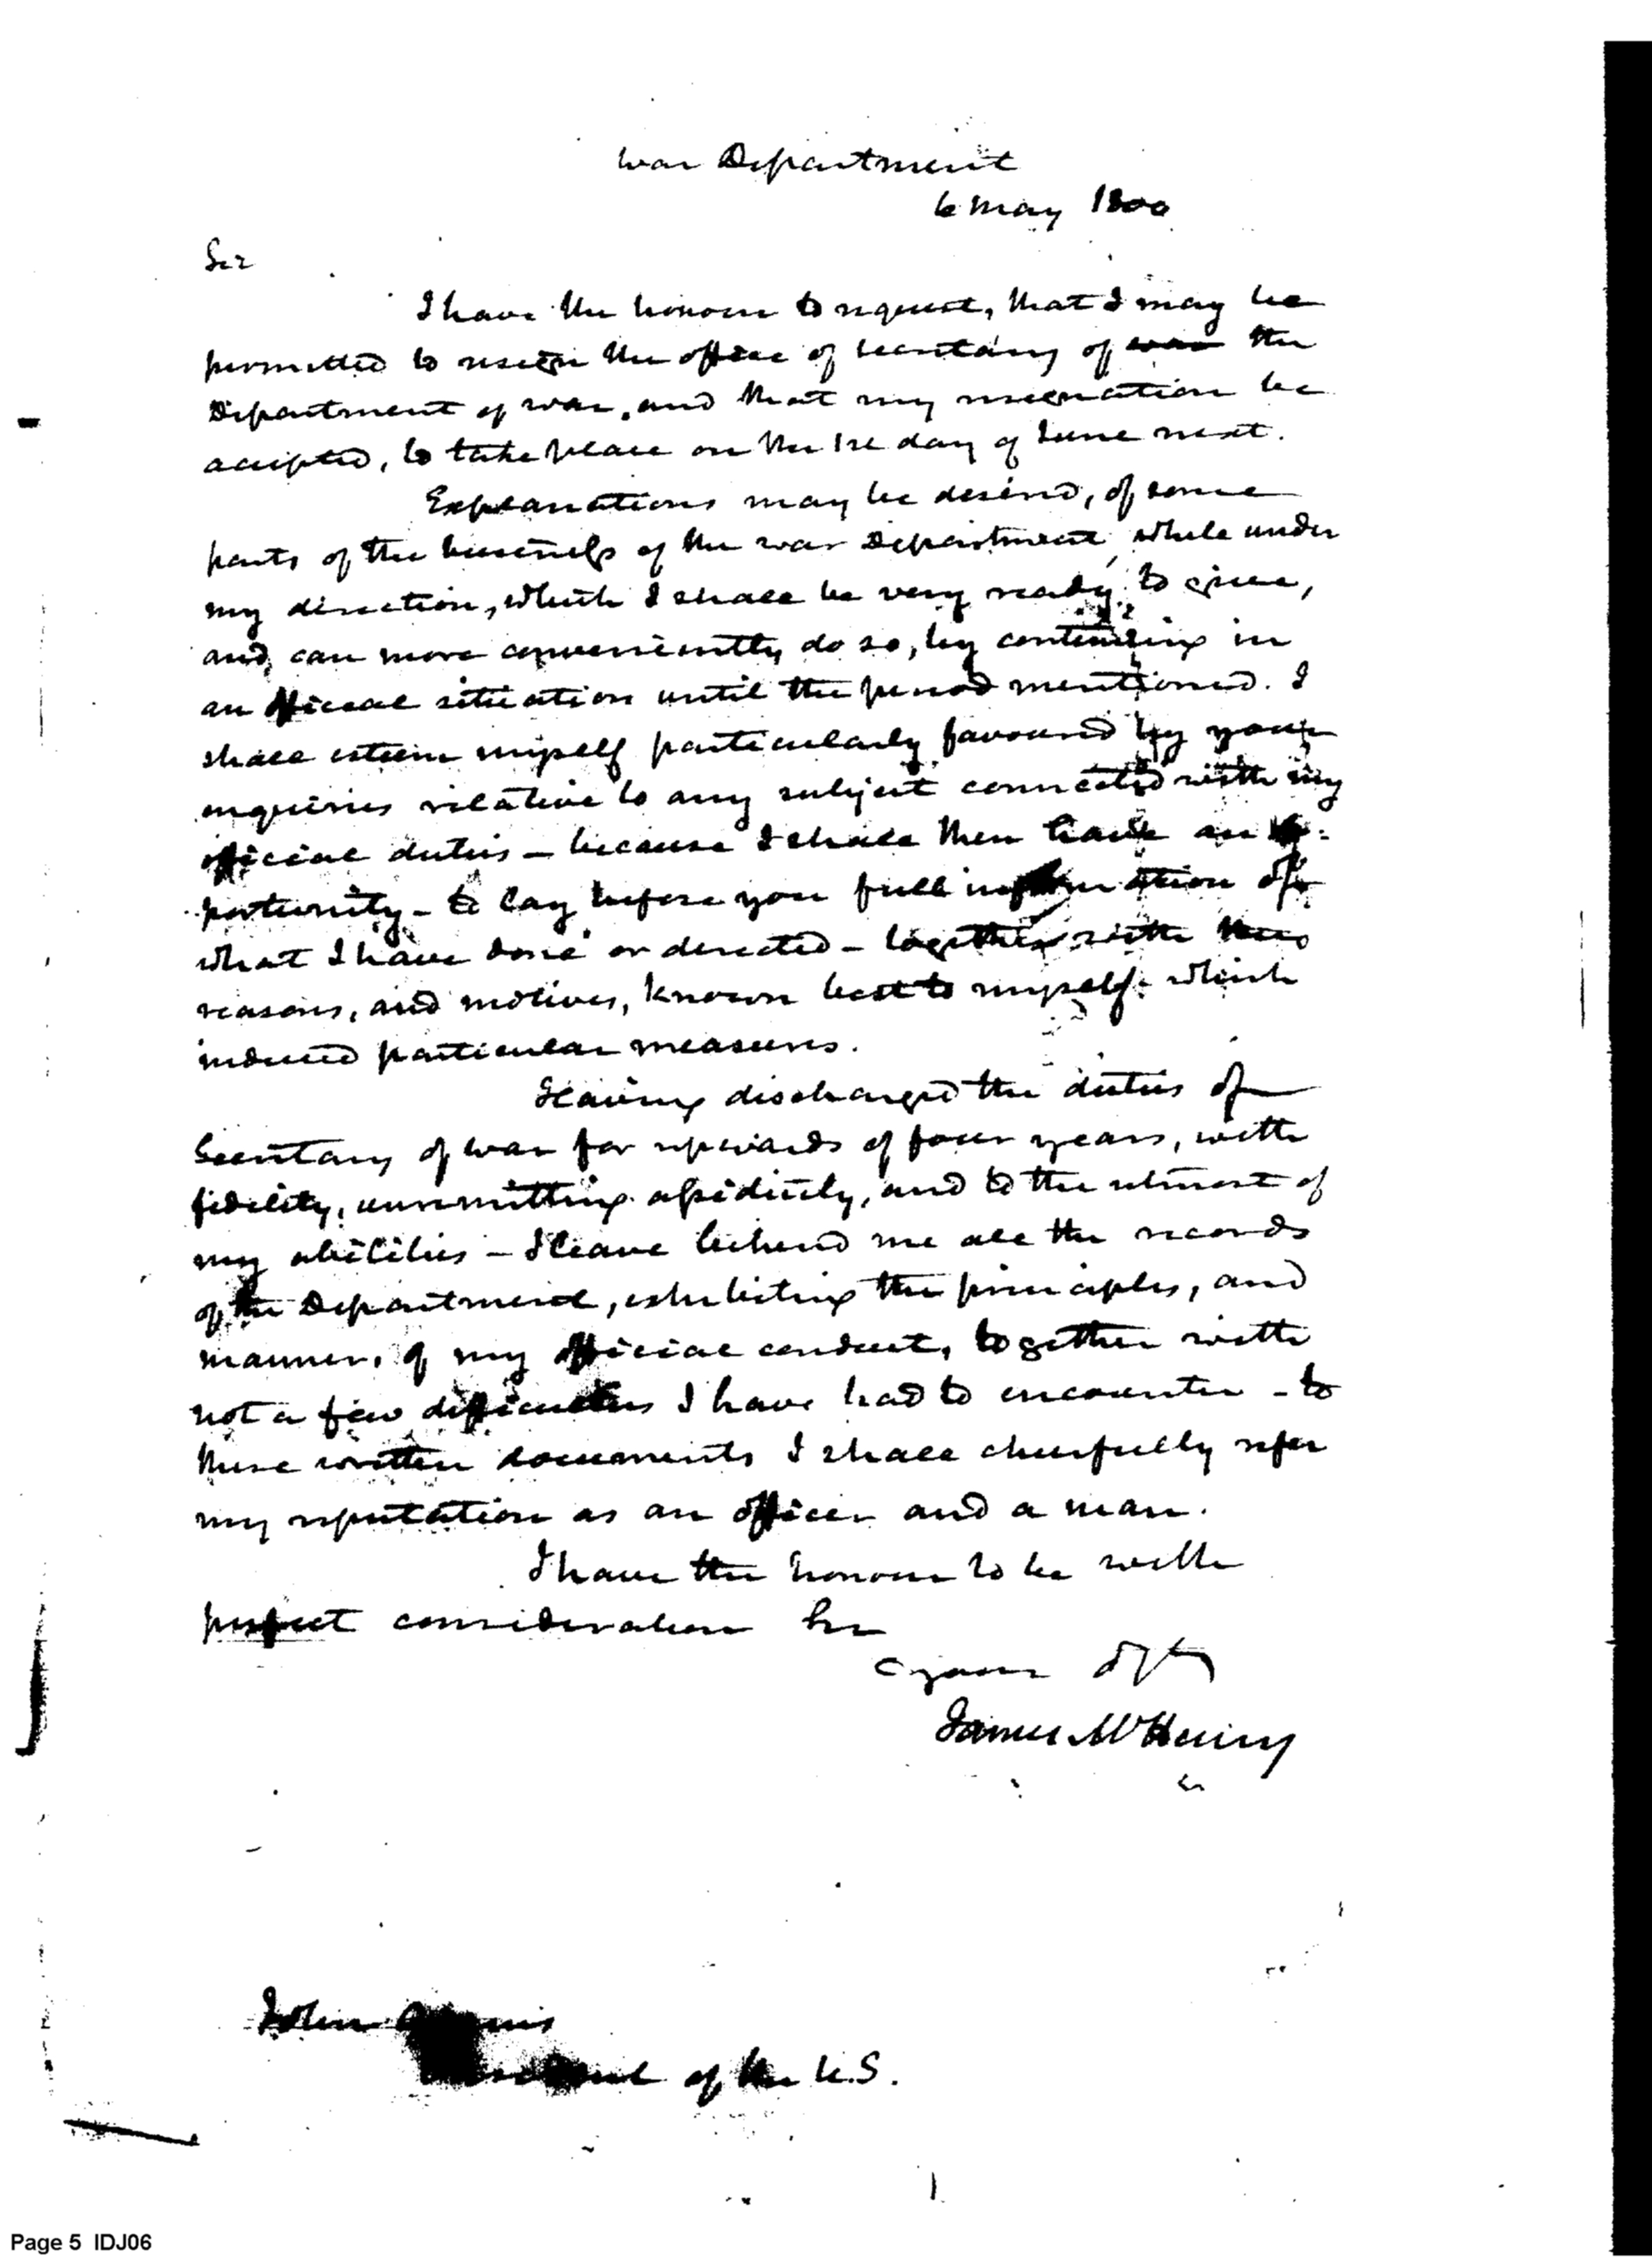 War Department
6 May 1800
Sir
I have the honour to request, that I may be
permitted to resign the office of Secretary of war the
Department of war, and that my resignation be
accepted, to take place on the 1st day of June next.
Explanations may be desired, of some
parts of the business of the war Department while under
my direction, which I shall be very ready to give,
and can more conveniently do so, by continuing in
an official situation until the period mentioned. I
shall esteem myself particularly favoured by your
inquiries relative to any subject connected with my
official duties – because I shall then have an op-
portunity – to lay before you full information of
what I have done or directed – together with the
reasons, and motives, known best to myself which
induced particular measures.
Having discharged the duties of
Secretary of war for upwards of four years, with
fidelity, unremitting assiduity, and to the utmost of
my abilities – I leave behind me all the records
of the Department, exhibiting the principles, and
manner, of my official conduct, together with
not a few difficulties I have had to encounter – to
these written documents I shall cheerfully refer
my reputation as an officer and a man.
I have the honour to be with
perfect consideration Sir
your
James McHenry
John Adams
President of the U.S.
Page 5 IDJ06